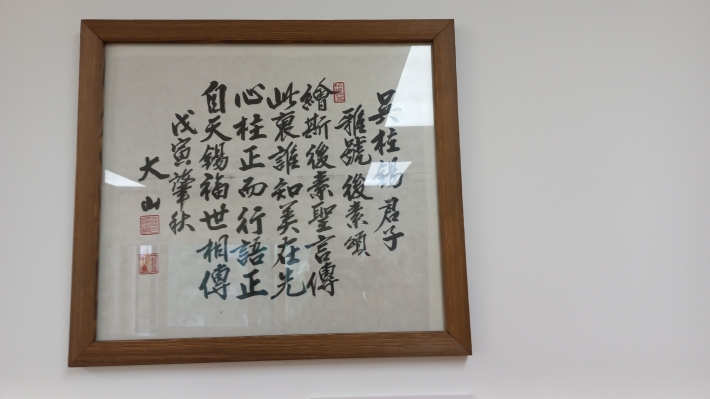 吳柱錫君子
雅號後素頌
繪斯後素聖言傳
此裏誰知美在先
心柱正而行語正
自天錫福世相傳
戊寅肇秋
大山